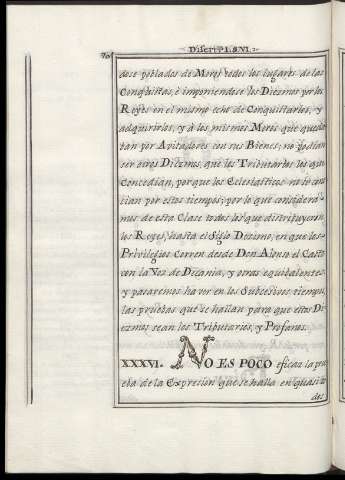 Discurs. VI.
dose poblados de Moros todos los lugares de las
Conquistas, è imponiendose los Diezmos por los
Reyes en el mismo echo de Conquistarlos, y
adquirirlos, y à los mismos Moros que queda-
ban por Avitadores con sus Bienes, no podian
ser otros Diezmos, que los Tributarios los que
Concedian, porque los Eclesiasticos no lo cono-
cian por estos tiempos; por lo que considera-
mos de esta Clase todos los que distribuyeron
los Reyes, hasta el Siglo Dezimo, en que los
Privilegios Corren desde Don Alonso el Casto
con la Voz de Dicania, y otras equibalentes
y pasaremos haver en los Subcesivos tiempos,
las pruebas que se hallan para que estos Di-
ezmos sean los Tributarios, y Profanos.
XXXVI. NO ES POCO eficaz la pru-
eba de la Expresion que se halla en quasi to-
dos